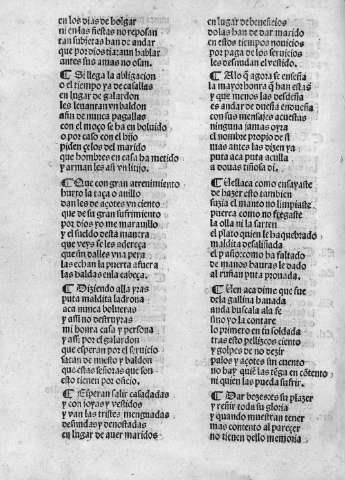 en los dias de holgar
ni en las fiestas no reposan
tan subjetas han de andar
que por dios tiaran hablar
antes sus amas no osan.
¶ Si llega la obligacion
o el tiempo ya de casallas
en lugar de galardon
les leuantan vn baldon
afin de nunca pagallas
con el moço se ha en boluido
o por caso con el hijo
piden celos del marido
que hombres en casa ha metido
y arman les assi vn litijo.
¶ Que con gran atreuimiento
hurto la taça o anillo
dan les de açotes vn ciento
que de su gran sufrimiento
por dios yo me marauillo
y el sueldo desta manera
que veys se les adereça
que sin dalles vna pera
las echan la puerta afuera
las baldas en la cabeça.
¶ Diziendo alla yras
puta maldita ladrona
aca nunca bolueras
y assi no destruyras
mi honra casa y persona
y assi por el galardon
que esperan por el seruicio
sacan de mesto y baldon
que estas señoras que son
esto tienen por oficio.
¶ Esperan salir casadas
y con joyas y vestidos
y van las tristes menguadas
desnudas y denostadas
en lugar de auer maridos
en lugar de beneficios
do las han de dar marido
en estos tiempos nouicios
por pago de los seruicios
les desnudan el vestido.
¶ A lo q̃ agora se enseña
la mayor honra q̃ han estas
y que menos las desdeña
es andar de dueña en dueña
con sus mensajes a cuestas
ninguna jamas oyra
el nombre propio de si
mas antes las dizen ya
puta aca puta aculla
a douas tiñosa di.
¶ Vellaca como ensayaste
de hazer esto tambien
suzia el manto no limpiaste
puerca como no fregaste
la olla ni la sarten
el plato quien le ha quebrado
maldita desaliñada
el paño como ha faltado
de manos hauras le dado
al rufian puta prouada.
¶ Ven aca dime que fue
de la gallina hauada
anda buscala a la fe
sino yo la contare
lo primero en tu soldada
tras esto pellizcos ciento
y golpes de no dezir
palos y açotes sin cuento
no hay quien las tẽga en cõtento
ni quien las pueda sufrir.
¶ Dar bozes es su plazer
y reñir toda su gloria
y quando muestran tener
mas contento al parecer
no tienen dello memoria